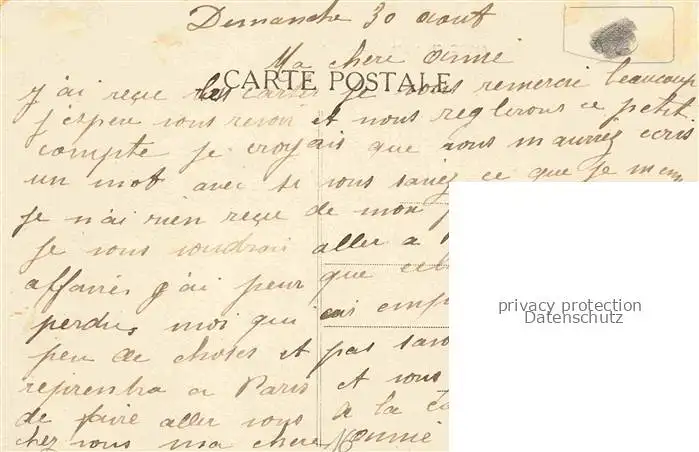 Demanche 30 aout
Ma chere Annie
CARTE POSTALE
j'ai reçue les cartes je vous remercie beaucoup
j'espeu vous revoir et nous reglerons ce petit
compte je croyais que vous m'auriez ecris
un mot avec si vous saviez ce que je m'enn
je n'ai rien reçue de mon
je vous voudrai aller a
affaires j'ai peur que cel
perdus moi qui avais emp
peu de choses et pas savo
reprendra a Paris et vous
de faire aller vous a la
chez vous ma chere Annie
privacy protection
Datenschutz